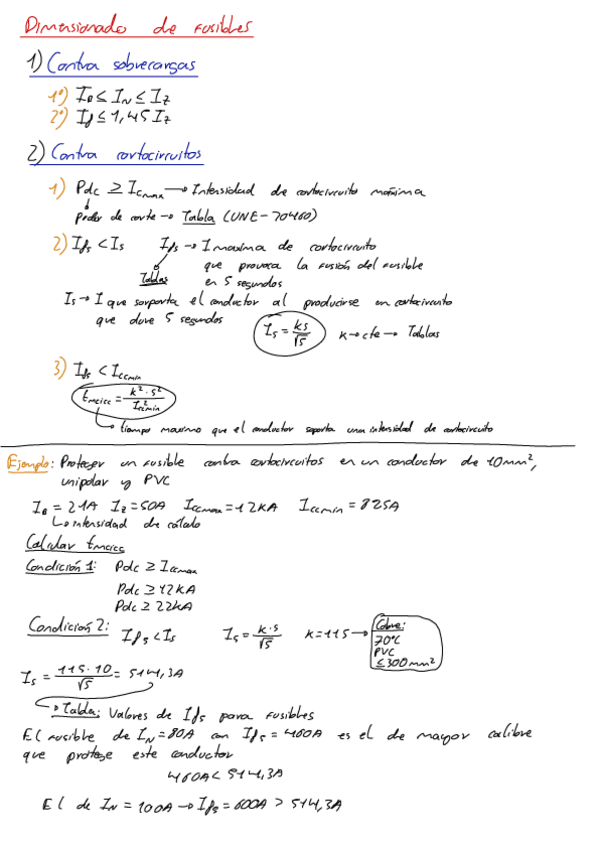 Dimensionado de fusibles
1) Contra sobrecargas
1º) I_B ≤ I_N ≤ I_Z
2º) I_f ≤ 1,45 I_Z
2) Contra cortocircuitos
1) Pdc ≥ I_cmax → Intensidad de cortocircuito máxima
poder de corte → Tabla (UNE-70460)
2) I_f5 < I_5 I_f5 → I maxima de cortocircuito
que provoca la fusión del fusible
Tablas en 5 segundos
I_5 → I que soporta el conductor al producirse un cortocircuito
que dure 5 segundos
I_5 = kS/√5 k → cte → Tablas
3) I_f5 < I_ccmin
t_mcicc = k²·S²/I²_ccmin
tiempo maximo que el conductor soporta una intensidad de cortocircuito
Ejemplo: Proteger un fusible contra cortocircuitos en un conductor de 10mm²,
unipolar y PVC
I_B = 21A I_Z = 50A I_ccmax = 12KA I_ccmin = 825A
↳ intensidad de cálculo
Calcular t_mcicc
Condición 1: Pdc ≥ I_ccmax
Pdc ≥ 12KA
Pdc ≥ 22KA
Condición 2: I_f5 < I_5 I_5 = k·S/√5 K = 115 → Cobre:
70ºC
PVC
≤300mm²
I_5 = 115·10/√5 = 514,3A
→ Tabla: Valores de I_f5 para fusibles
El fusible de I_N = 80A con I_f5 = 460A es el de mayor calibre
que protege este conductor
460A < 514,3A
El de I_N = 100A → I_f5 = 600A > 514,3A